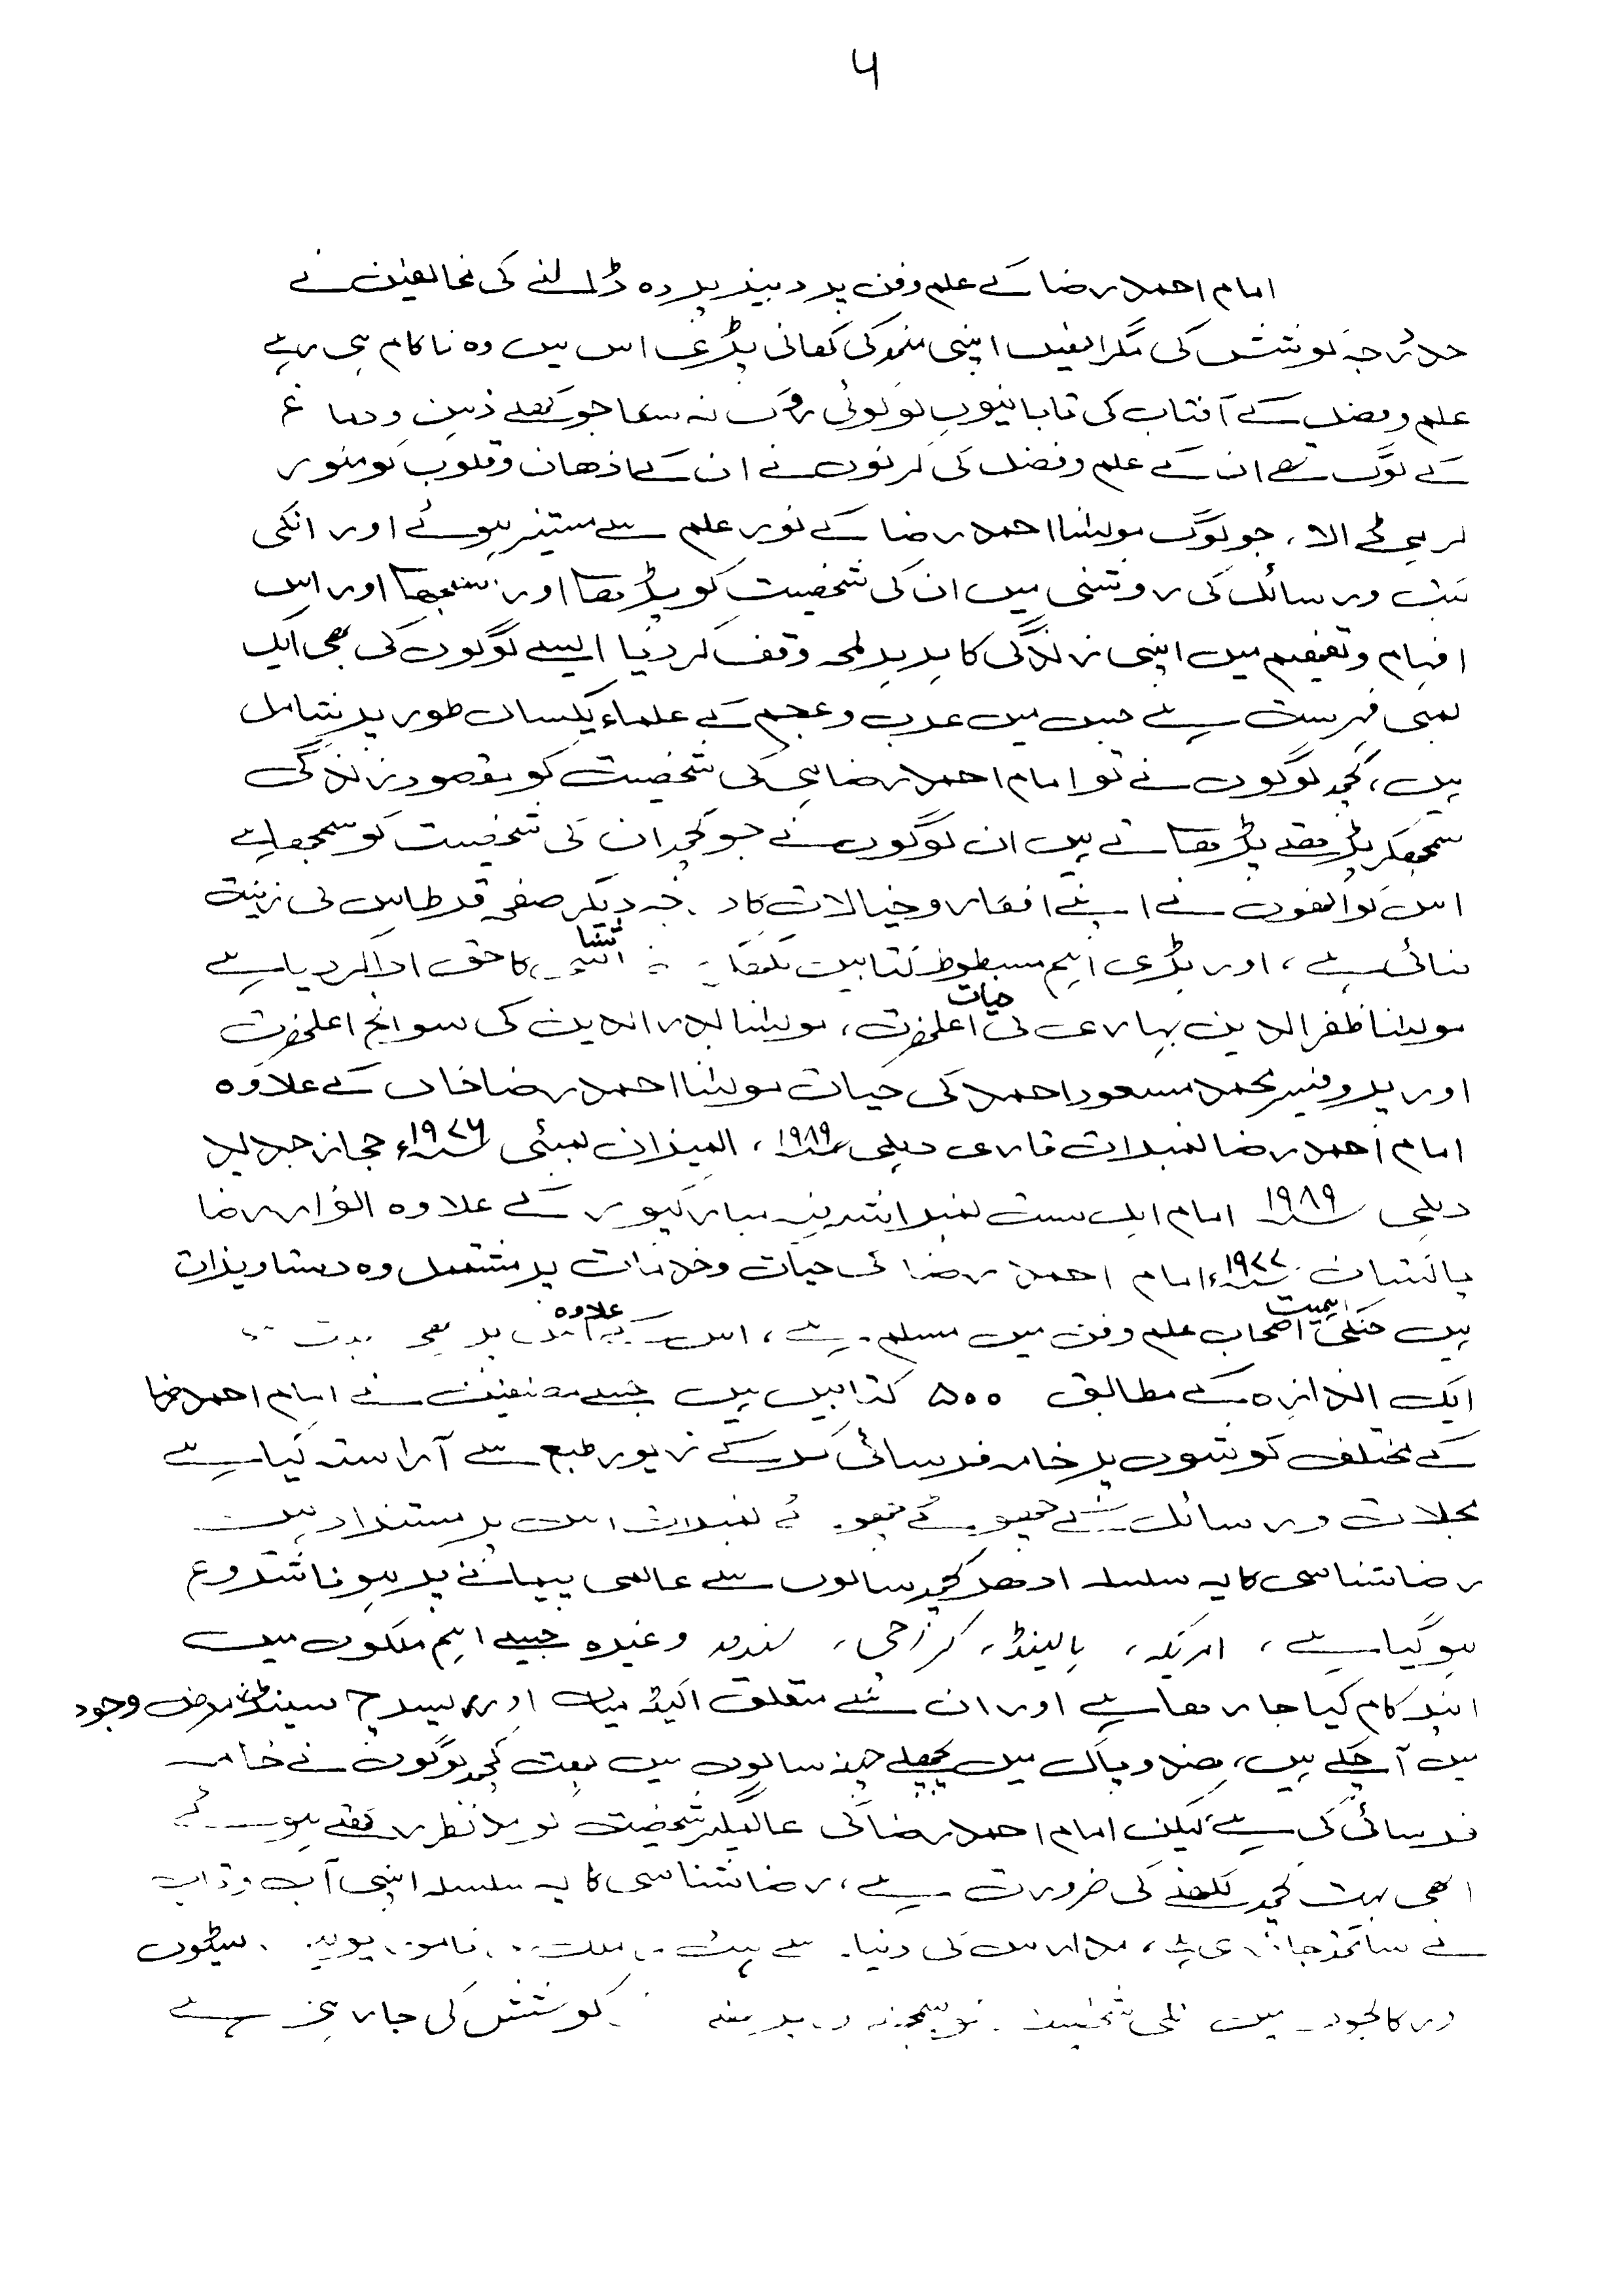 ۶
امام احمد رضا کے علم و فن پر دبیز پردہ ڈالنے کی مخالفین نے
حد درجہ کوشش کی مگر انھیں اپنی منھ کی کھانی پڑی اس میں وہ ناکام ہی رہے
علم و فضل کے آفتاب کی تابانیوں کو کوئی روک نہ سکا جو کھلے ذہن و دماغ
کے لوگ تھے ان کے علم و فضل کی کرنوں نے ان کے اذھان و قلوب کو منور
کر ہی ڈالا، جو لوگ مولٰنا احمد رضا کے نور علم سے مستنیر ہوئے اور انکی
کتب و رسائل کی روشنی میں ان کی شخصیت کو پڑھا اور سمجھا اور اس
افہام و تفہیم میں اپنی زندگی کا ہر ہر لمحہ وقف کر دیا ایسے لوگوں کی بھی ایک
لمبی فہرست ہے جس میں عرب و عجم کے علماء یکساں طور پر شامل
ہیں، کچھ لوگوں نے تو امام احمد رضا ہی کی شخصیت کو مقصود زندگی
سمجھکر پڑھتے پڑھاتے ہیں ان لوگوں نے جو کچھ ان کی شخصیت کو سمجھا ہے
اس کو انھوں نے اپنے افکار و خیالات کا درجہ دیکر صفحہ قرطاس کی زینت
بنائی ہے، اور بڑی اہم مبسوط کتابیں کا حق ادا کر دیا ہے
مولٰنا ظفر الدین بہاری کی حیات اعلحضرت، مولٰنا بدر الدین کی سوانح اعلحضرت
اور پروفیسر محمد مسعود احمد کی حیات مولٰنا احمد رضا خاں کے علاوہ
امام احمد رضا نمبرات قاری دہلی ۱۹۸۹، المیزان بمبئی ۱۹۷۶ء حجاز جدید
دہلی ۱۹۸۹ امام اہل سنت نمبر اشرفیہ مبارکپور کے علاوہ انوار رضا
پاکستان ۱۹۷۷ء امام احمد رضا کی حیات و خدمات پر مشتمل وہ دستاویزات
ہیں جنکی اہمیت اصحاب علم و فن میں مسلم ہے، اس کے علاوہ پر بھی بہت
ایک اندازہ کے مطابق ۵۰۰ کتابیں ہیں جسے مصنفین نے امام احمد رضا
کے مختلف گوشوں پر خامہ فرسائی کر کے زیور طبع سے آراستہ کیا ہے
مجلات و رسائل کے چھوٹے چھوٹے نمبرات اس پر مستزاد ہیں
رضا شناسی کا یہ سلسلہ ادھر کچھ سالوں سے عالمی پیمانے پر ہونا شروع
ہوگیا ہے، امریکہ، ہالینڈ، کراچی، لندن وغیرہ جیسے اہم ملکوں میں
انپر کام کیا جا رھا ہے اور ان سے متعلق اکیڈمیاں اور ریسرچ سینٹر معرض وجود
میں آ چکے ہیں، ھند و پاک میں پچھلے چند سالوں میں بہت کچھ لوگوں نے خامہ
فرسائی کی ہے لیکن امام احمد رضا کی عالمگیر شخصیت کو مد نظر رکھتے ہوئے
ابھی بہت کچھ لکھنے کی ضرورت ہے، رضا شناسی کا یہ سلسلہ اپنی آب و تاب
کے ساتھ جاری ہے، مدارس کی دنیا سے ہٹ
اور کالجوں میں کوشش کی جا رہی ہے